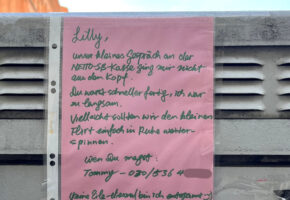 Lilly,
unser kleines Gespräch an der
NETTO-SB-Kasse ging mir nicht
aus dem Kopf.
Du warst schneller fertig, ich war
zu langsam.
Vielleicht sollten wir den kleinen
Flirt einfach in Ruhe weiter-
spinnen.
Wenn Du magst:
Tommy - 030/536 4
Keine Eile - diesmal bin ich